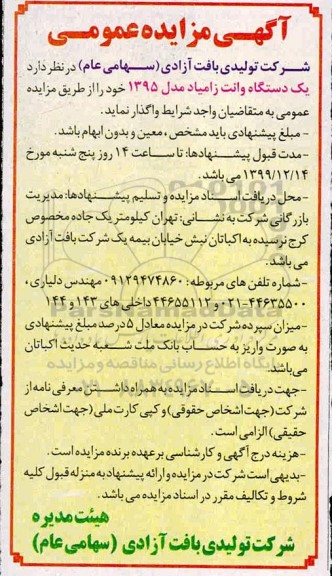 آگهی مزایده عمومی
شرکت تولیدی بافت آزادی (سهامی عام) در نظر دارد
یک دستگاه وانت زامیاد مدل ۱۳۹۵ خود را از طریق مزایده
عمومی به متقاضیان واجد شرایط واگذار نماید.
- مبلغ پیشنهادی باید مشخص، معین و بدون ابهام باشد.
-مدت قبول پیشنهادها: تا ساعت ۱۴ روز پنج شنبه مورخ
۱۳۹۹/۱۲/۱۴ می باشد.
- محل دریافت اسناد مزایده و تسلیم پیشنهادها: مدیریت
بازرگانی شرکت به نشانی: تهران کیلومتر یک جاده مخصوص
کرج نرسیده به اکباتان نبش خیابان بیمه یک شرکت بافت آزادی
می باشد.
-شماره تلفن های مربوطه: ۰۹۱۲۹۴۷۴۸۶۰ مهندس دلیاری،
۰۲۱-۴۴۶۳۵۵۰۰ و ۴۴۶۵۵۱۱۲ داخلی های ۱۴۳ و ۱۴۴
-میزان سپرده شرکت در مزایده معادل ۵ درصد مبلغ پیشنهادی
به صورت واریز به حساب بانک ملت شعبه حدیث اکباتان
می باشد.
-جهت دریافت اسناد مزایده به همراه داشتن معرفی نامه از
شرکت (جهت اشخاص حقوقی) و کپی کارت ملی (جهت اشخاص
حقیقی) الزامی است.
-هزینه درج آگهی و کارشناسی بر عهده برنده مزایده است.
-بدیهی است شرکت در مزایده و ارائه پیشنهاد به منزله قبول کلیه
شروط و تکالیف مقرر در اسناد مزایده می باشد.
هیئت مدیره
شرکت تولیدی بافت آزادی (سهامی عام)